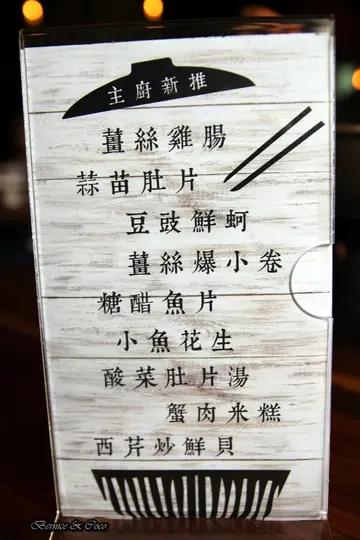 主廚新推
薑絲雞腸
蒜苗肚片
豆豉鮮蚵
薑絲爆小卷
糖醋魚片
小魚花生
酸菜肚片湯
蟹肉米糕
西芹炒鮮貝
Bernice & Coco